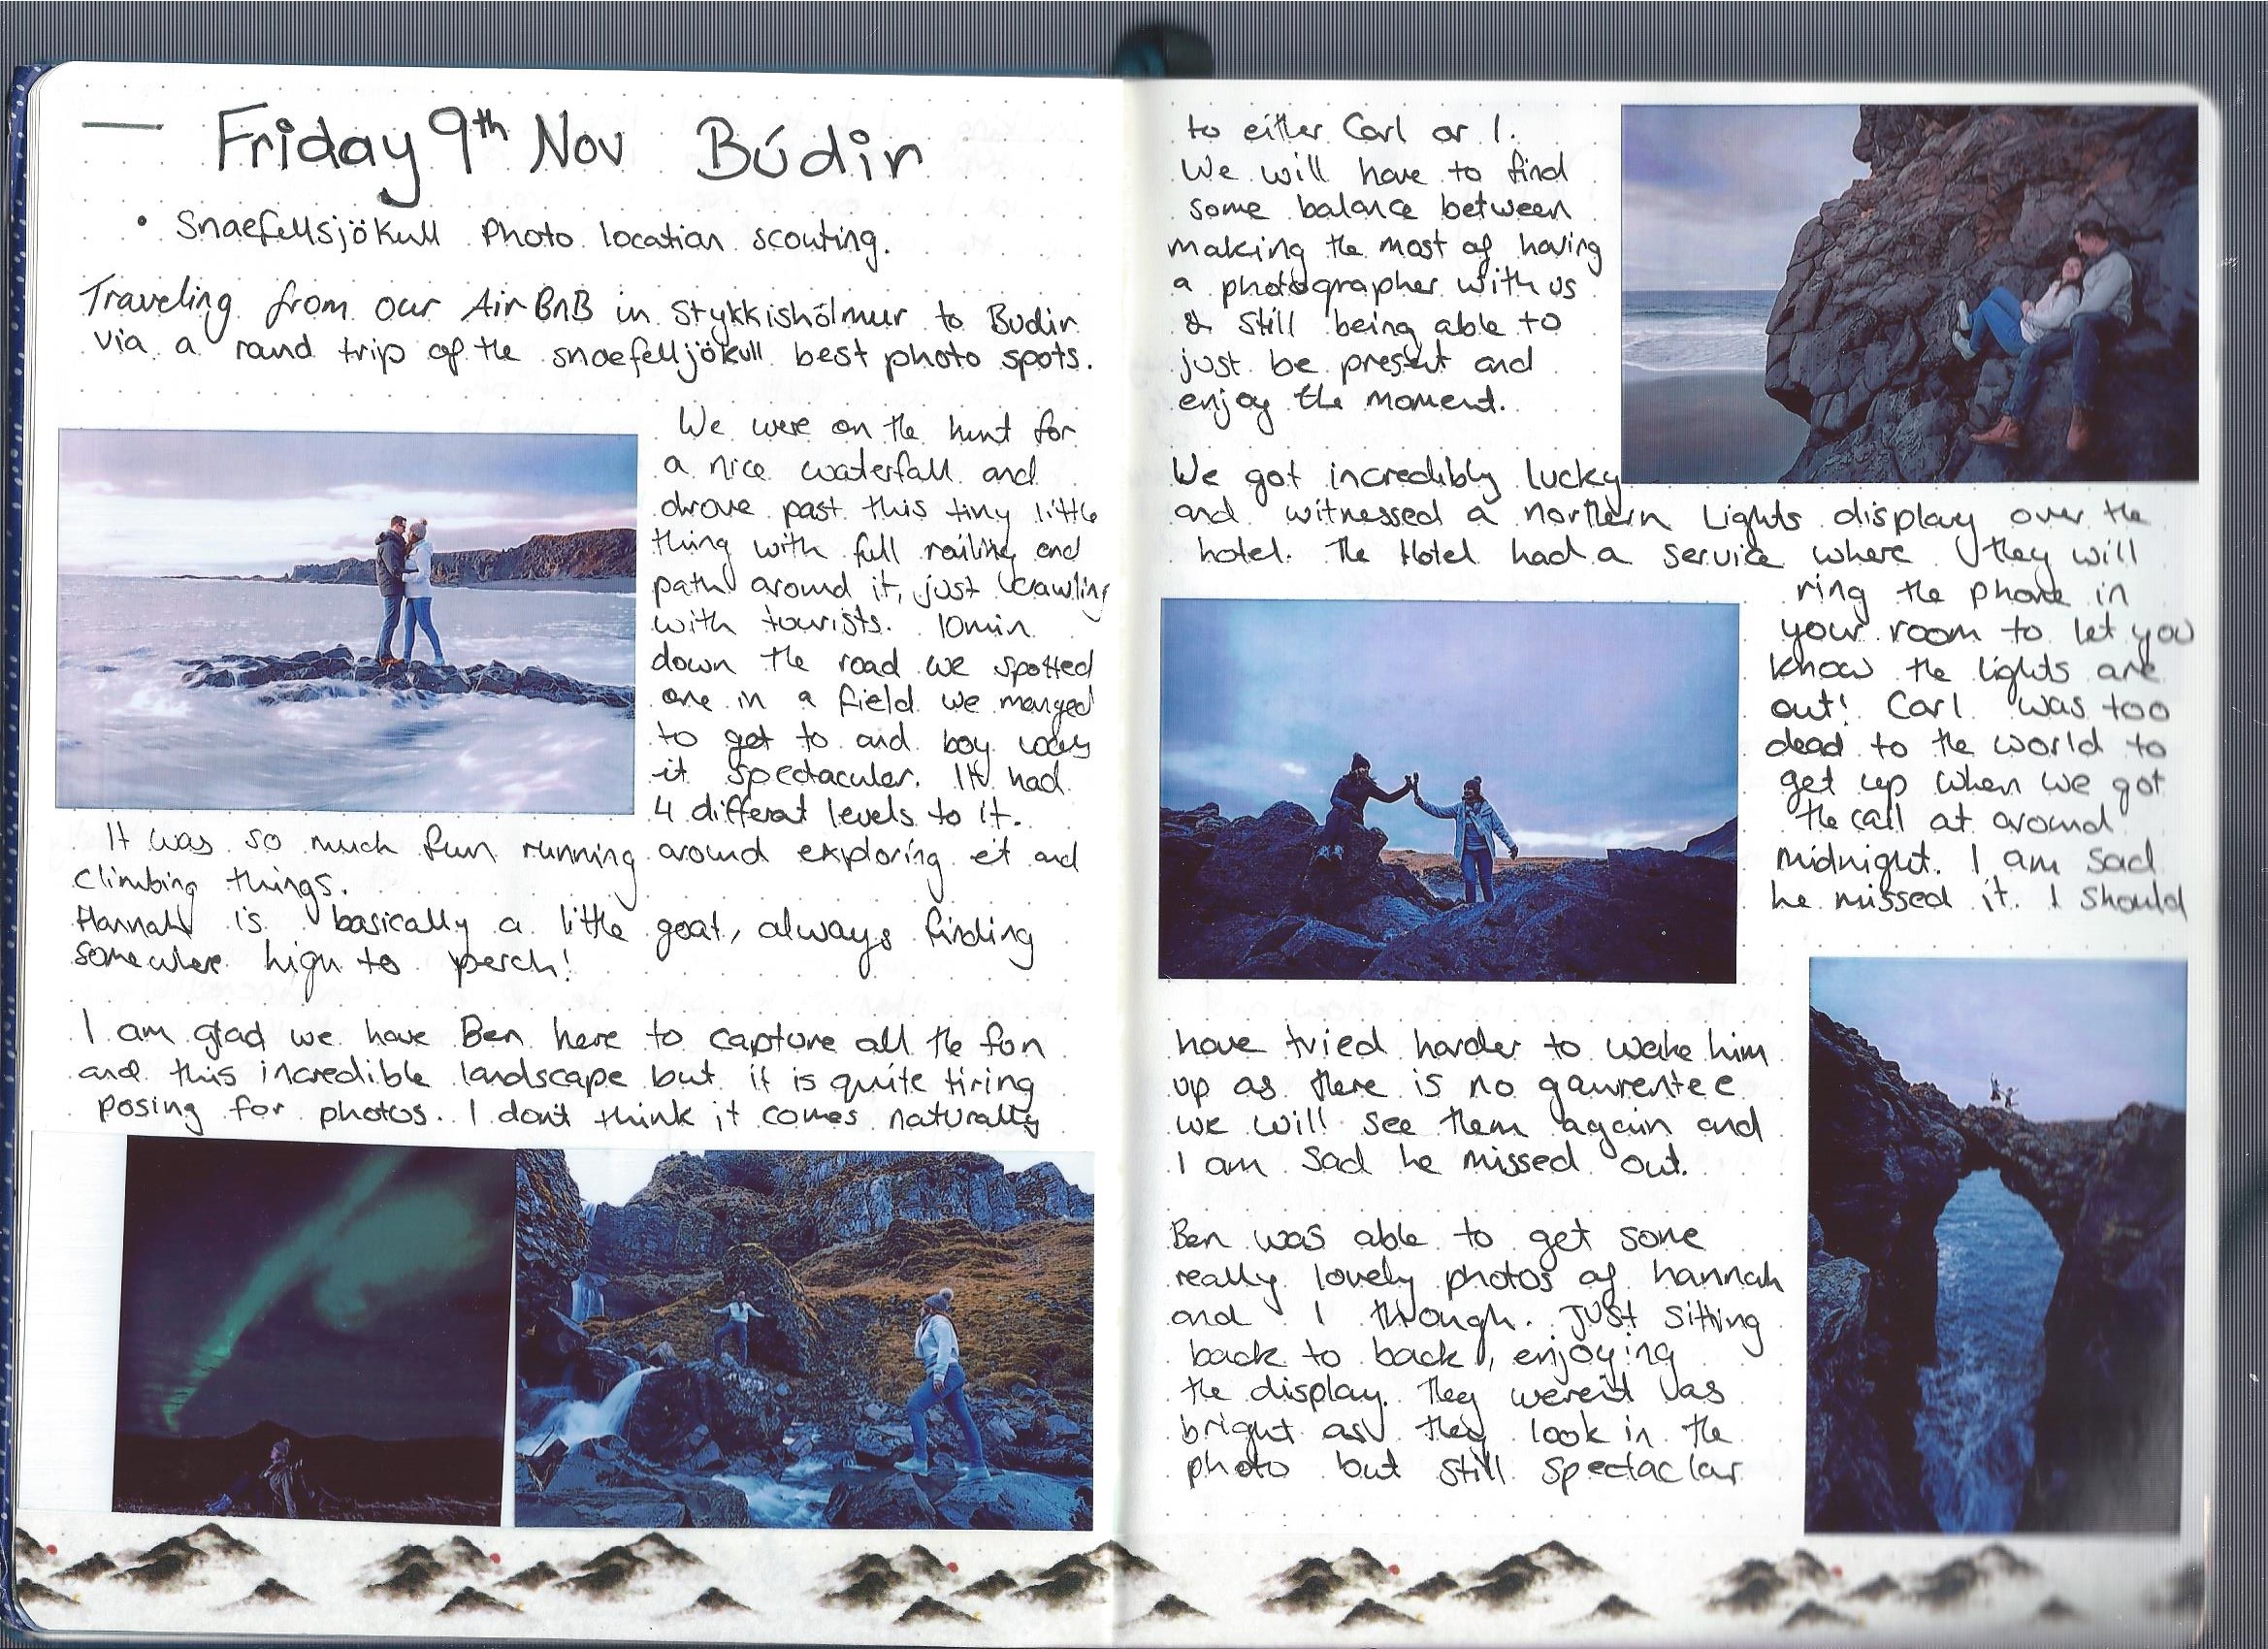 Friday 9th Nov Búdir
• Snaefellsjökull Photo location scouting.
Traveling from our AirBnB in Stykkishólmur to Budir
via a round trip of the snaefelljökull best photo spots.
We were on the hunt for
a nice waterfall and
drove past this tiny little
thing with full railing and
path around it, just crawling
with tourists. 10min
down the road we spotted
one in a field we manged
to get to and boy was
it spectacular. It had
4 different levels to it.
It was so much fun running around exploring it and
climbing things.
Hannah is basically a little goat, always finding
somewhere high to perch!
I am glad we have Ben here to capture all the fun
and this incredible landscape but it is quite tiring
posing for photos. I don't think it comes naturally
to either Carl or I.
We will have to find
some balance between
making the most of having
a photographer with us
& still being able to
just be present and
enjoy the moment.
We got incredibly lucky
and witnessed a northern Lights display over the
hotel. The Hotel had a service where they will
ring the phone in
your room to let you
know the lights are
out! Carl was too
dead to the world to
get up when we got
the call at around
midnight. I am sad
he missed it. I should
have tried harder to wake him
up as there is no gaurentee
we will see them again and
I am sad he missed out.
Ben was able to get some
really lovely photos of hannah
and I though. Just sitting
back to back, enjoying
the display. They weren't as
bright as they look in the
photo but still spectaclar